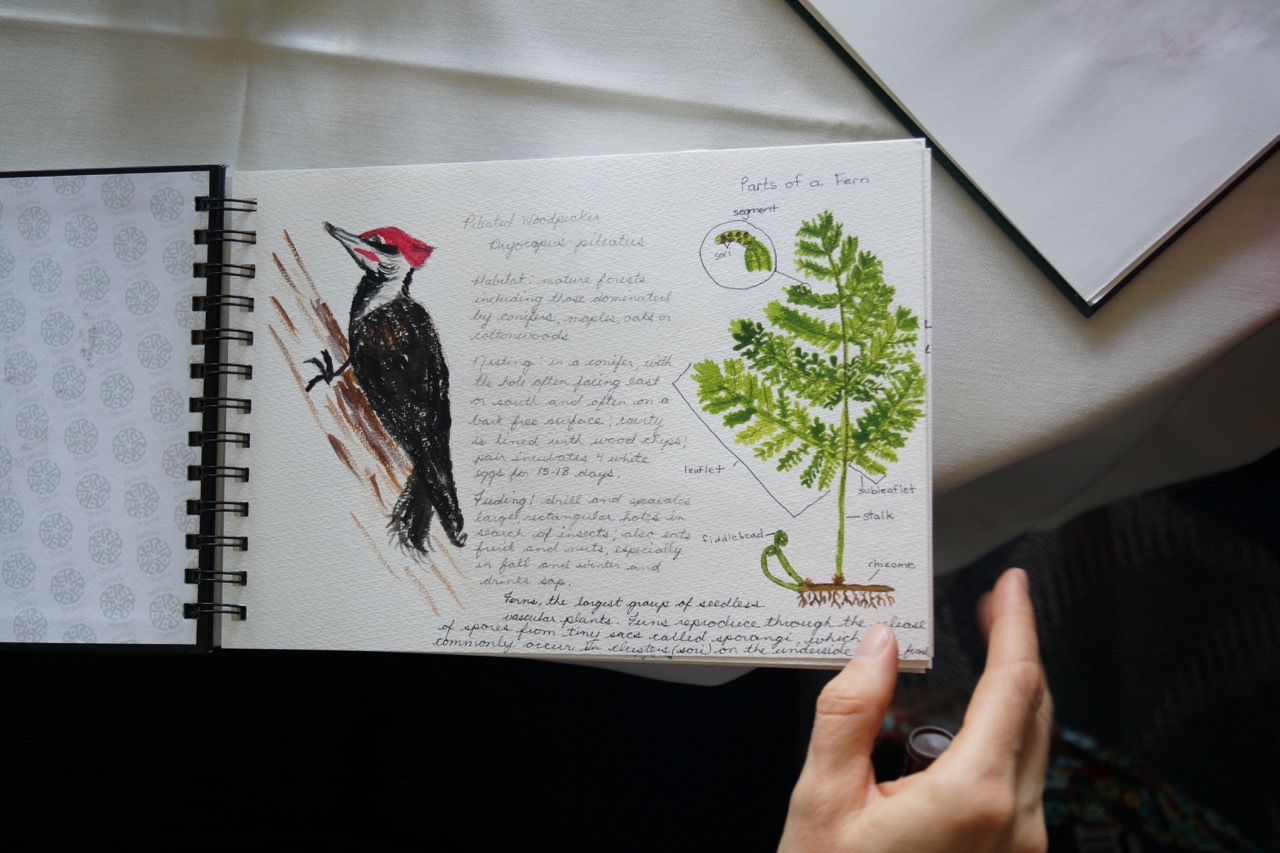 Pileated Woodpecker
Dryocopus pileatus
Habitat: mature forests
including those dominated
by conifers, maples, oaks or
cottonwoods.
Nesting: in a conifer, with
the hole often facing east
or south and often on a
bark free surface; cavity
is lined with wood chips;
pair incubates 4 white
eggs for 15-18 days.
Feeding: drill and excavates
large, rectangular holes in
search of insects; also eats
fruit and nuts, especially
in fall and winter and
drinks sap.
Parts of a Fern
segment
sori
leaflet
subleaflet
stalk
fiddlehead
rhizome
Ferns, the largest group of seedless
vascular plants. Ferns reproduce through the release
of spores from tiny sacs called sporangi, which
commonly occur in clusters (sori) on the underside